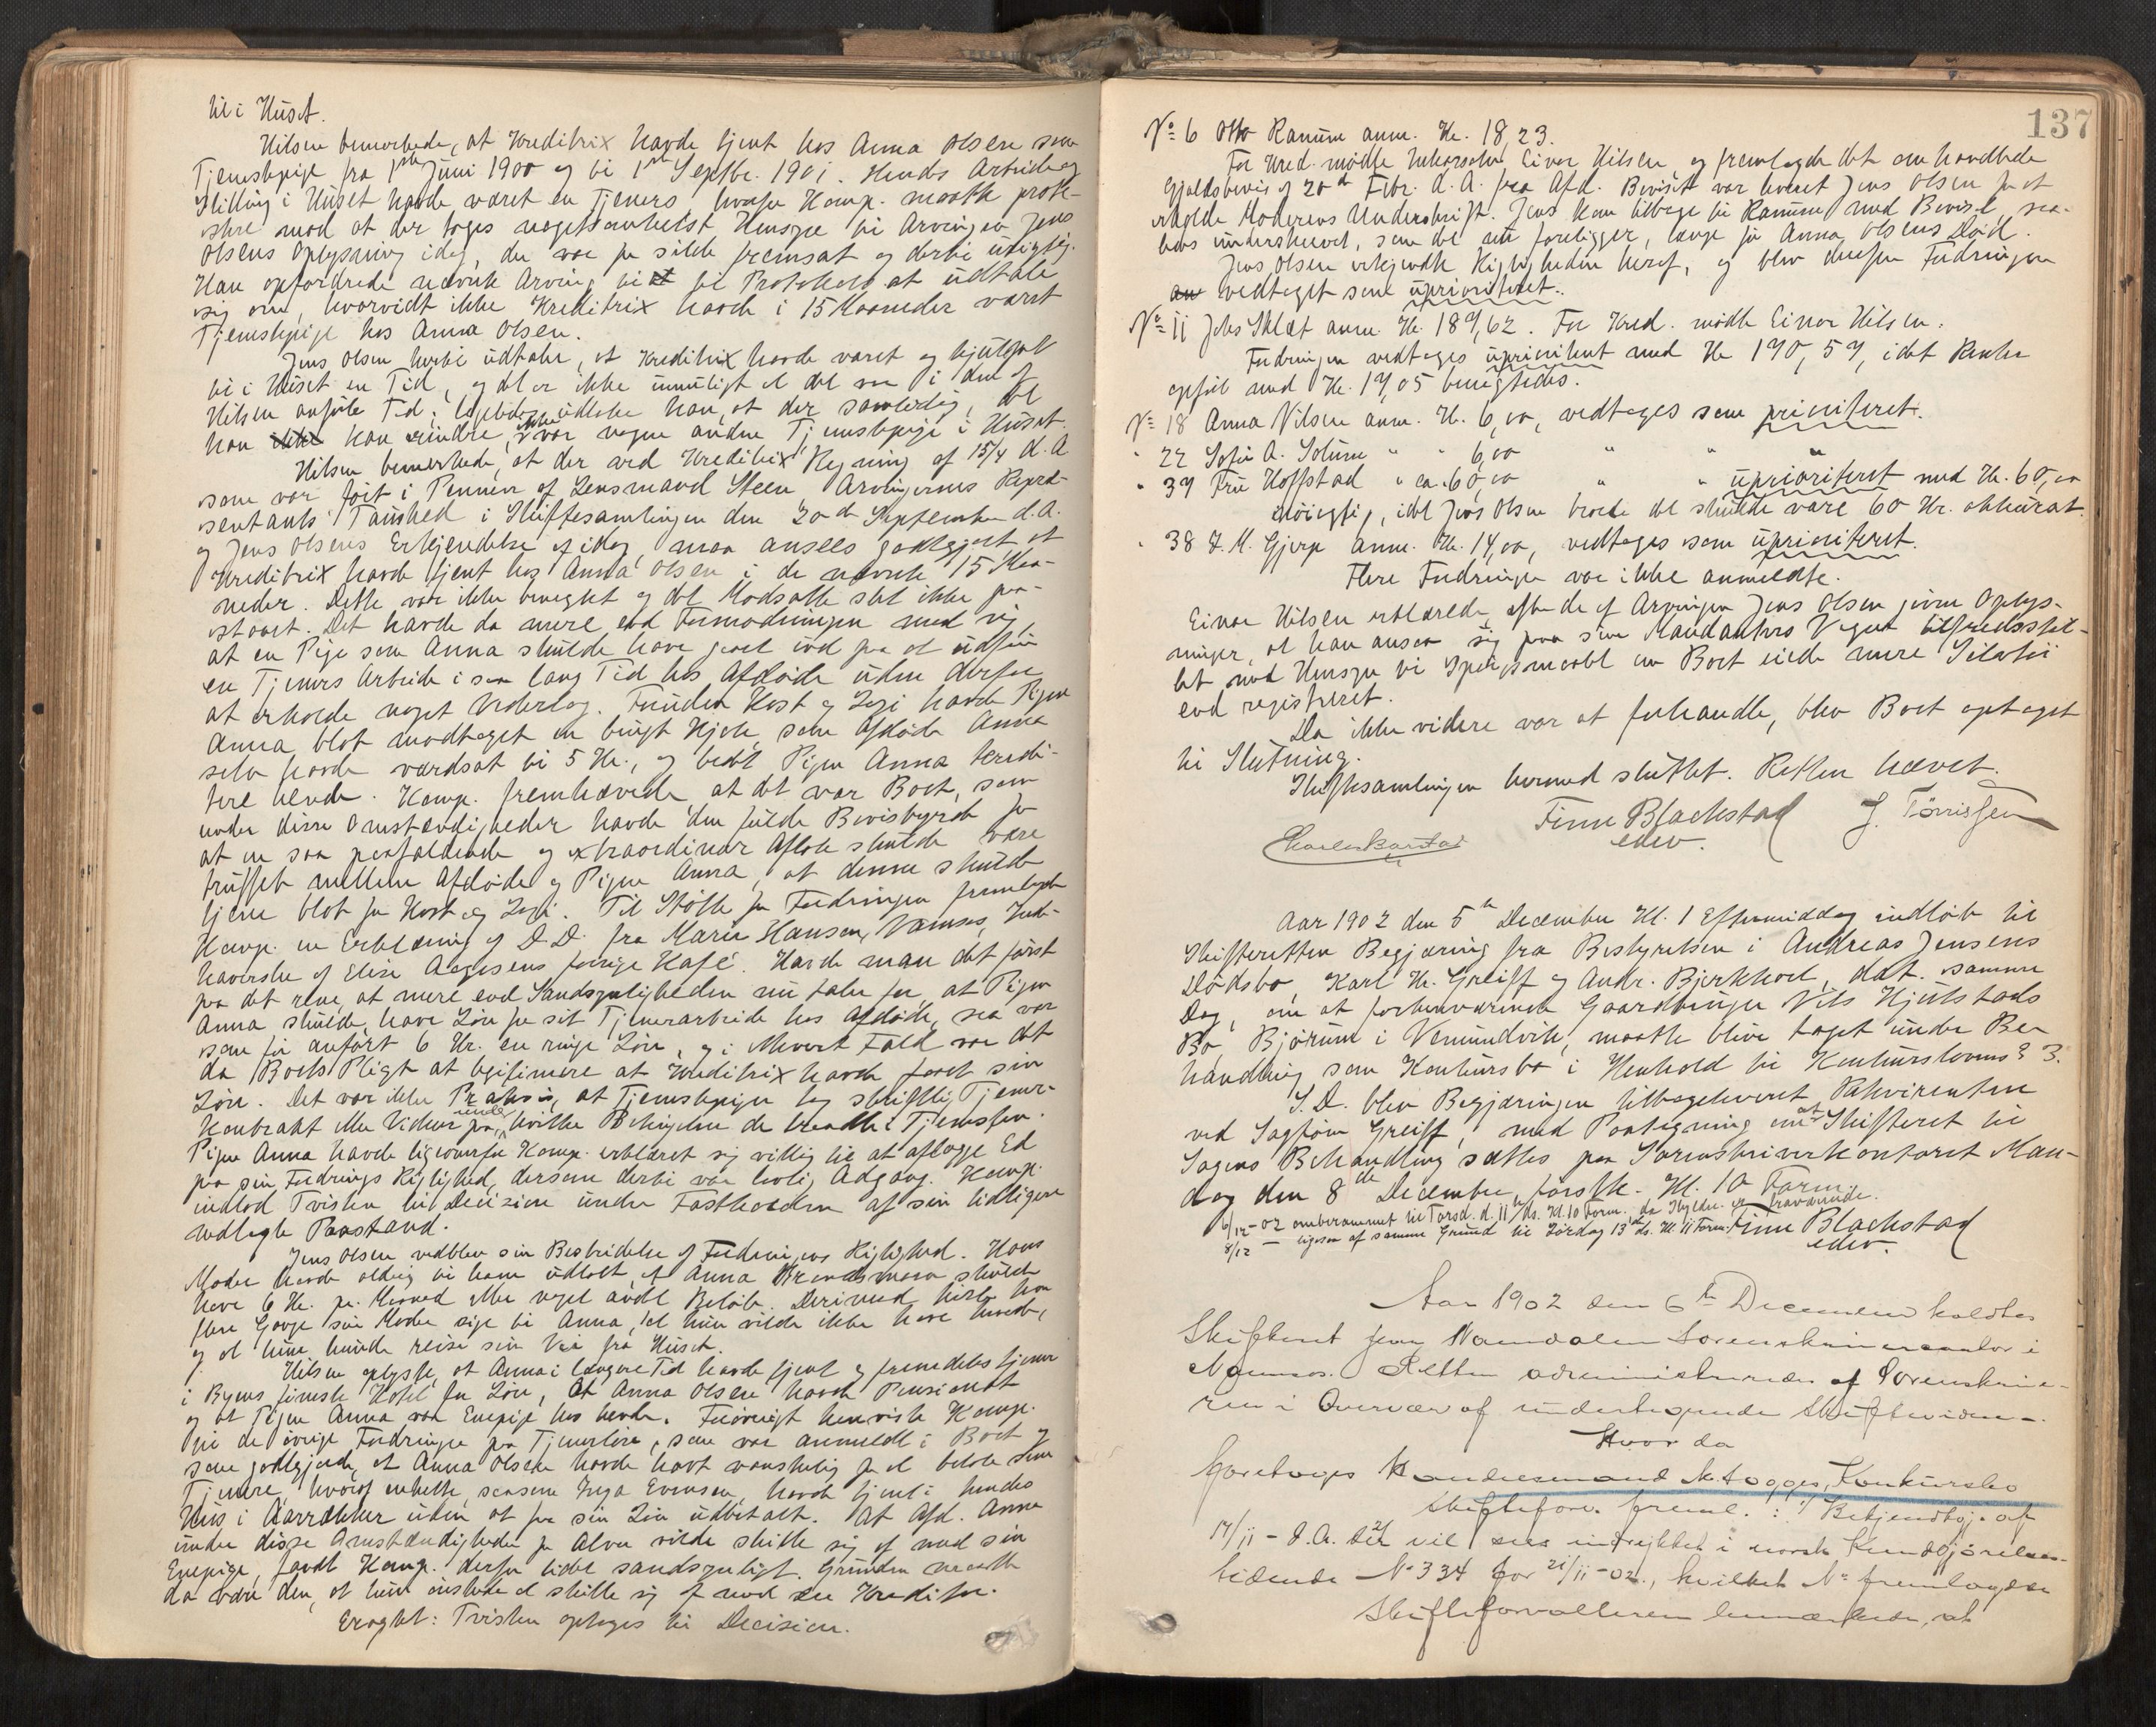 til i Huset.
Nilsen bemerkede, at Kreditrix havde tjent hos Anna Olsen som
Tjenestepige fra 1ste Juni 1900 og til 1ste Septbr. 1901. Hendes Arbeide og
Stilling i Huset havde været en Tjeners, hvorfor Komp. maatte prote-
stere mod at der toges nogetsomhelst Hensyn til Arvingen Jens
Olsens Oplysning idag, der var for silde fremsat og dertil urigtig.
Han opfordrede nævnte Arving til Protokols at udtale
sig om, hvorvidt ikke Kreditrix havde i 15 Maaneder været
Tjenestepige hos Anna Olsen.
Jens Olsen hertil udtaler, at Kreditrix havde været og hjulpet
til i Huset en Tid, og det er ikke umuligt at det var i den af
Nilsen anførte Tid; ligeledes udtaler han, at der samtidig, det
han kan erindre, ikke var nogen anden Tjenestepige i Huset.
Nilsen bemerkede, at der ved Kreditrix' Regning af 15/4 d. A
som var ført i Pennen af Lensmand Steen, Arvingernes Repræ-
sentants Taushed i Skiftesamlingen den 20de September d. A.
og Jens Olsens Erkjendelse af idag, maa ansees godtgjort at
Kreditrix havde tjent hos Anna Olsen i de nævnte 15 Maa-
neder. Dette var ikke benegtet og det Modsatte slet ikke paa-
staaet. Det havde da mere end Formodningen mod sig,
at en Pige som Anna skulde have gaaet ind paa at udføre
en Tjeners Arbeide i saa lang Tid hos Afdøde uden derfor
at erholde noget Vederlag. Foruden Kost og Logi havde Pigen
Anna blot modtaget en brugt Kjole, som Afdøde Anna
selv havde værdsat til 5 Kr., og bedt Pigen Anna kredi-
tere hende. Komp. fremhævede, at det var Boet, som
under disse Omstændigheder havde den fulde Bevisbyrde for
at en saa paafaldende og extraordinær Aftale skulde være
truffet mellem Afdøde og Pigen Anna, at denne skulde
tjene blot for Kost og Logi. Til Støtte for Fordringen fremlagde
Komp. en Erklæring af D. D. fra Marie Hansen, Namsos, Inde-
haverske af Elise Aagesens forrige Kafé. Havde man det først
paa det rene, at mere end Sandsynligheden nu taler for, at Pigen
Anna skulde have Løn for sit Tjenerarbeide hos Afdøde, saa var
som før anført 6 Kr. en ringe Løn, og i ethvert Fald var det
da Boets Pligt at legitimere at Kreditrix havde faaet sin
Løn. Det var ikke Praksis, at Tjenestepiger tog skriftlig Tjener-
Kontrakt eller Vidner paa, under hvilke Betingelser de traadte i Tjenesten.
Pigen Anna havde ligeoverfor Komp. erklæret sig villig til at aflægge Ed
paa sin Fordrings Rigtighed, dersom dertil var lovlig Adgang. Komp.
indlod Tvisten til Decision under Fastholden af sin tidligere
nedlagte Paastand.
Jens Olsen vedblev sin Bestridelse af Fordringens Rigtighed. Hans
Moder havde aldrig til ham udtalt, at Anna skulde
have 6 Kr. pr. Maaned eller noget andet Beløb. Derimod hørte han
flere Gange sin Moder sige til Anna, at hun vilde ikke have hende,
og at hun kunde reise sin Vei fra Huset.
Nilsen oplyste, at Anna i længere Tid havde tjent og fremdeles tjener
i Byens fineste Hotel for Løn, at Anna Olsen havde Pensionat
og at Pigen Anna var Enepige hos hende. Forøvrigt henviste Komp.
til de øvrige Fordringer paa Tjenerløn, som var anmeldt i Boet og
som godtgjorde, at Anna Olsen havde havt vanskelig for at betale sine
Tjenere, hvoraf enkelte, saasom Inga Evensen, havde tjent i hendes
Hus i Aarrækker uden at faa sin Løn udbetalt. At Afd. Anna
under disse Omstændigheder for Alvor vilde skille sig af med sin
Enepige, fandt Komp. derfor lidet sandsynligt. Grunden maatte
da være den, at hun ønskede at skille sig af med en Kreditor.
Eragtet: Tvisten optages til Decision.
137
No 6 Otto Ranum anm. Kr. 18,23.
For Kred. mødte Inkassator Einar Nilsen og fremlagde det omhandlede
Gjældsbevis af 20de Febr. d. A. fra Afd. Beviset var leveret Jens Olsen for at
erholde Moderens Underskrift. Jens kom tilbage til Ranum med Beviset, saa-
ledes underskrevet, som det nu foreligger, længe før Anna Olsens Død.
Jens Olsen erkjendte Rigtigheden heraf, og blev derfor Fordringen
vedtaget som uprioriteret.
No 11 Johs Sklæt anm. Kr. 187,62. For Kred. mødte Einar Nilsen.
Fordringen vedtoges uprioriteret med Kr 170,57, idet Renter
opført med Kr. 17,05 benegtedes.
No 18 Anna Nilsen anm. Kr. 6,00, vedtoges som prioriteret.
" 22 Sofie A. Solum " " 6,00 " " "
" 37 Fru Hoffstad " ca. 60,00 " " uprioriteret med Kr. 60,00
nøiagtig, idet Jens Olsen troede det skulde være 60 Kr. akkurat.
" 38 F. M. Gjerp anm. Kr. 14,00, vedtoges som uprioriteret.
Flere Fordringer var ikke anmeldte.
Einar Nilsen erklærede, efter de af Arvingen Jens Olsen givne Oplys-
ninger, at han ansaa sig paa sine Mandanters Vegne tilfredsstil-
let med Hensyn til Spørgsmaalet om Boet eiede mere Sølvtøi
end registreret.
Da ikke videre var at forhandle, blev Boet optaget
til Slutning.
Skiftesamlingen hermed sluttet. Retten hævet.
Finn Blackstad
edsv.
J. Tørrissen
Aar 1902 den 5te December Kl. 1 Eftermiddag indløb til
Skifteretten Begjæring fra Bestyrelsen i Andreas Jensens
Dødsbo, Karl Kr. Greiff og Andr. Bjerkhoel, dat. samme
Dag, om at forhenværende Gaardbruger Nils Hjulstads
Bo, Bjørum i Vemundvik, maatte blive taget under Be-
handling som Konkursbo i Henhold til Konkurslovens § 3.
S. D. blev Begjæringen tilbageleveret Rekvirenten
ved Sagfører Greiff, med Paategning om at Skifteret til
Sagens Behandling sættes paa Sorenskriverkontoret Man-
dag den 8de December førstk. Kl. 10 Form.
6/12-02 omberammet til Torsd. d. 11/ds. Kl. 10 Form., da Skyldn. er fraværende.
8/12 — ligesaa af samme Grund til Lørdag 13de ds. Kl. 11 Form. Finn Blackstad
edsv.
Aar 1902 den 6te December holdtes
Skifteret paa Namdalens Sorenskriverkontor i
Namsos. Retten administreredes af Sorenskrive-
ren i Overvær af undertegnede Skiftevidner.
Hvor da
foretoges Handelsmand M. Fogges Konkursbo
Skifteforv. freml.: 1/ Bekjendtgj. af
17/11 - d. A. der vil sees indrykket i norsk Kundgjørelses-
tidende No 334 for 21/11-02, hvilket No fremlagdes
Skifteforvalteren bemærkede, at